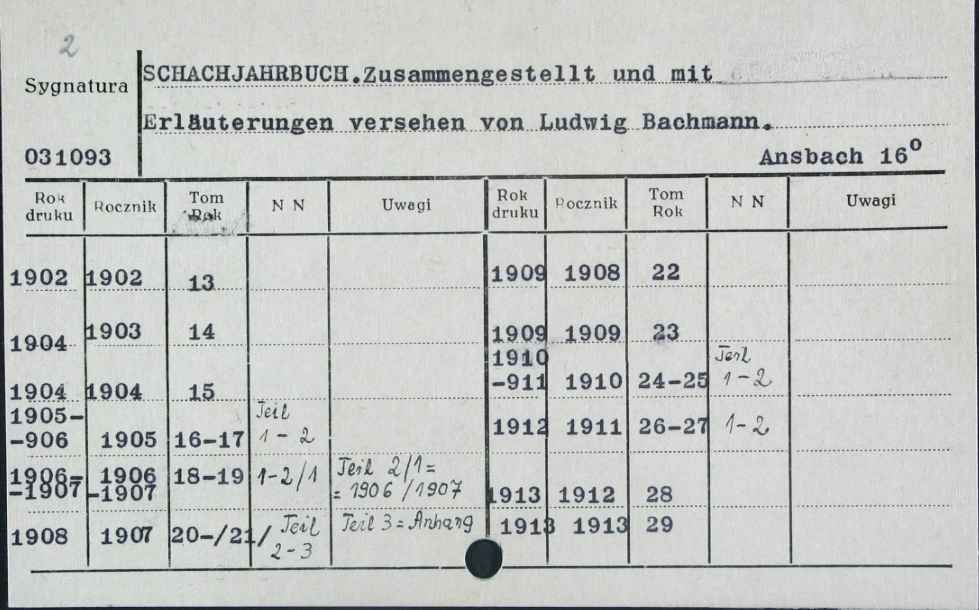 2
Sygnatura
SCHACHJAHRBUCH.Zusammengestellt und mit
Erläuterungen versehen von Ludwig Bachmann.
031093
Ansbach 16⁰
Rok druku Rocznik Tom Rok N N Uwagi Rok druku Rocznik Tom Rok N N Uwagi
1902 1902 13
1904 1903 14
1904 1904 15
1905-
-906 1905 16-17 Teil 1-2
1906-
-1907 1906
-1907 18-19 1-2/1 Teil 2/1=
= 1906/1907
1908 1907 20-/21/ Teil 2-3 Teil 3 = Anhang
1909 1908 22
1909 1909 23
1910
-911 1910 24-25 Teil 1-2
1912 1911 26-27 1-2
1913 1912 28
1913 1913 29